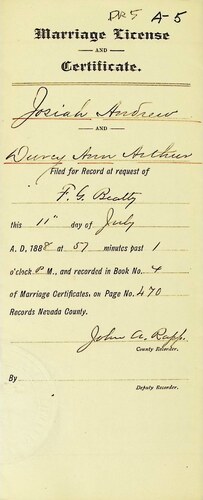 DR5 A-5
Marriage License
AND
Certificate.
Josiah Andrew
AND
Ann Arthur
Filed for Record at request of
F. G. Beatty
this 11" day of July
A. D. 1888 at 57 minutes past 1
o'clock P M., and recorded in Book No. 4
of Marriage Certificates, on Page No. 470
Records Nevada County.
John A. Rapp
County Recorder.
By
Deputy Recorder.